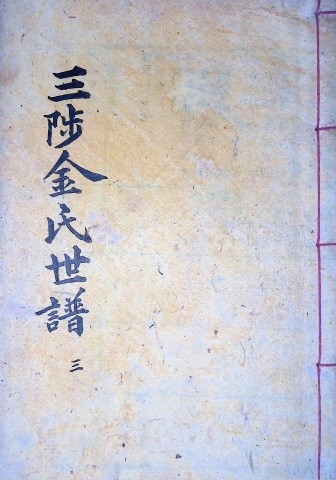 三陟金氏世譜
三